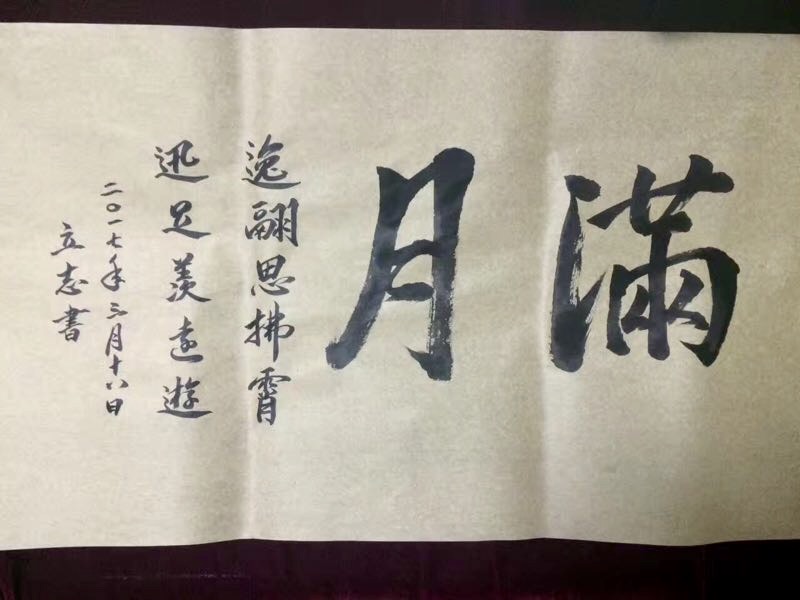 滿月
逸翮思拂霄
迅足羨遠遊
二〇一七年三月十八日
立志書